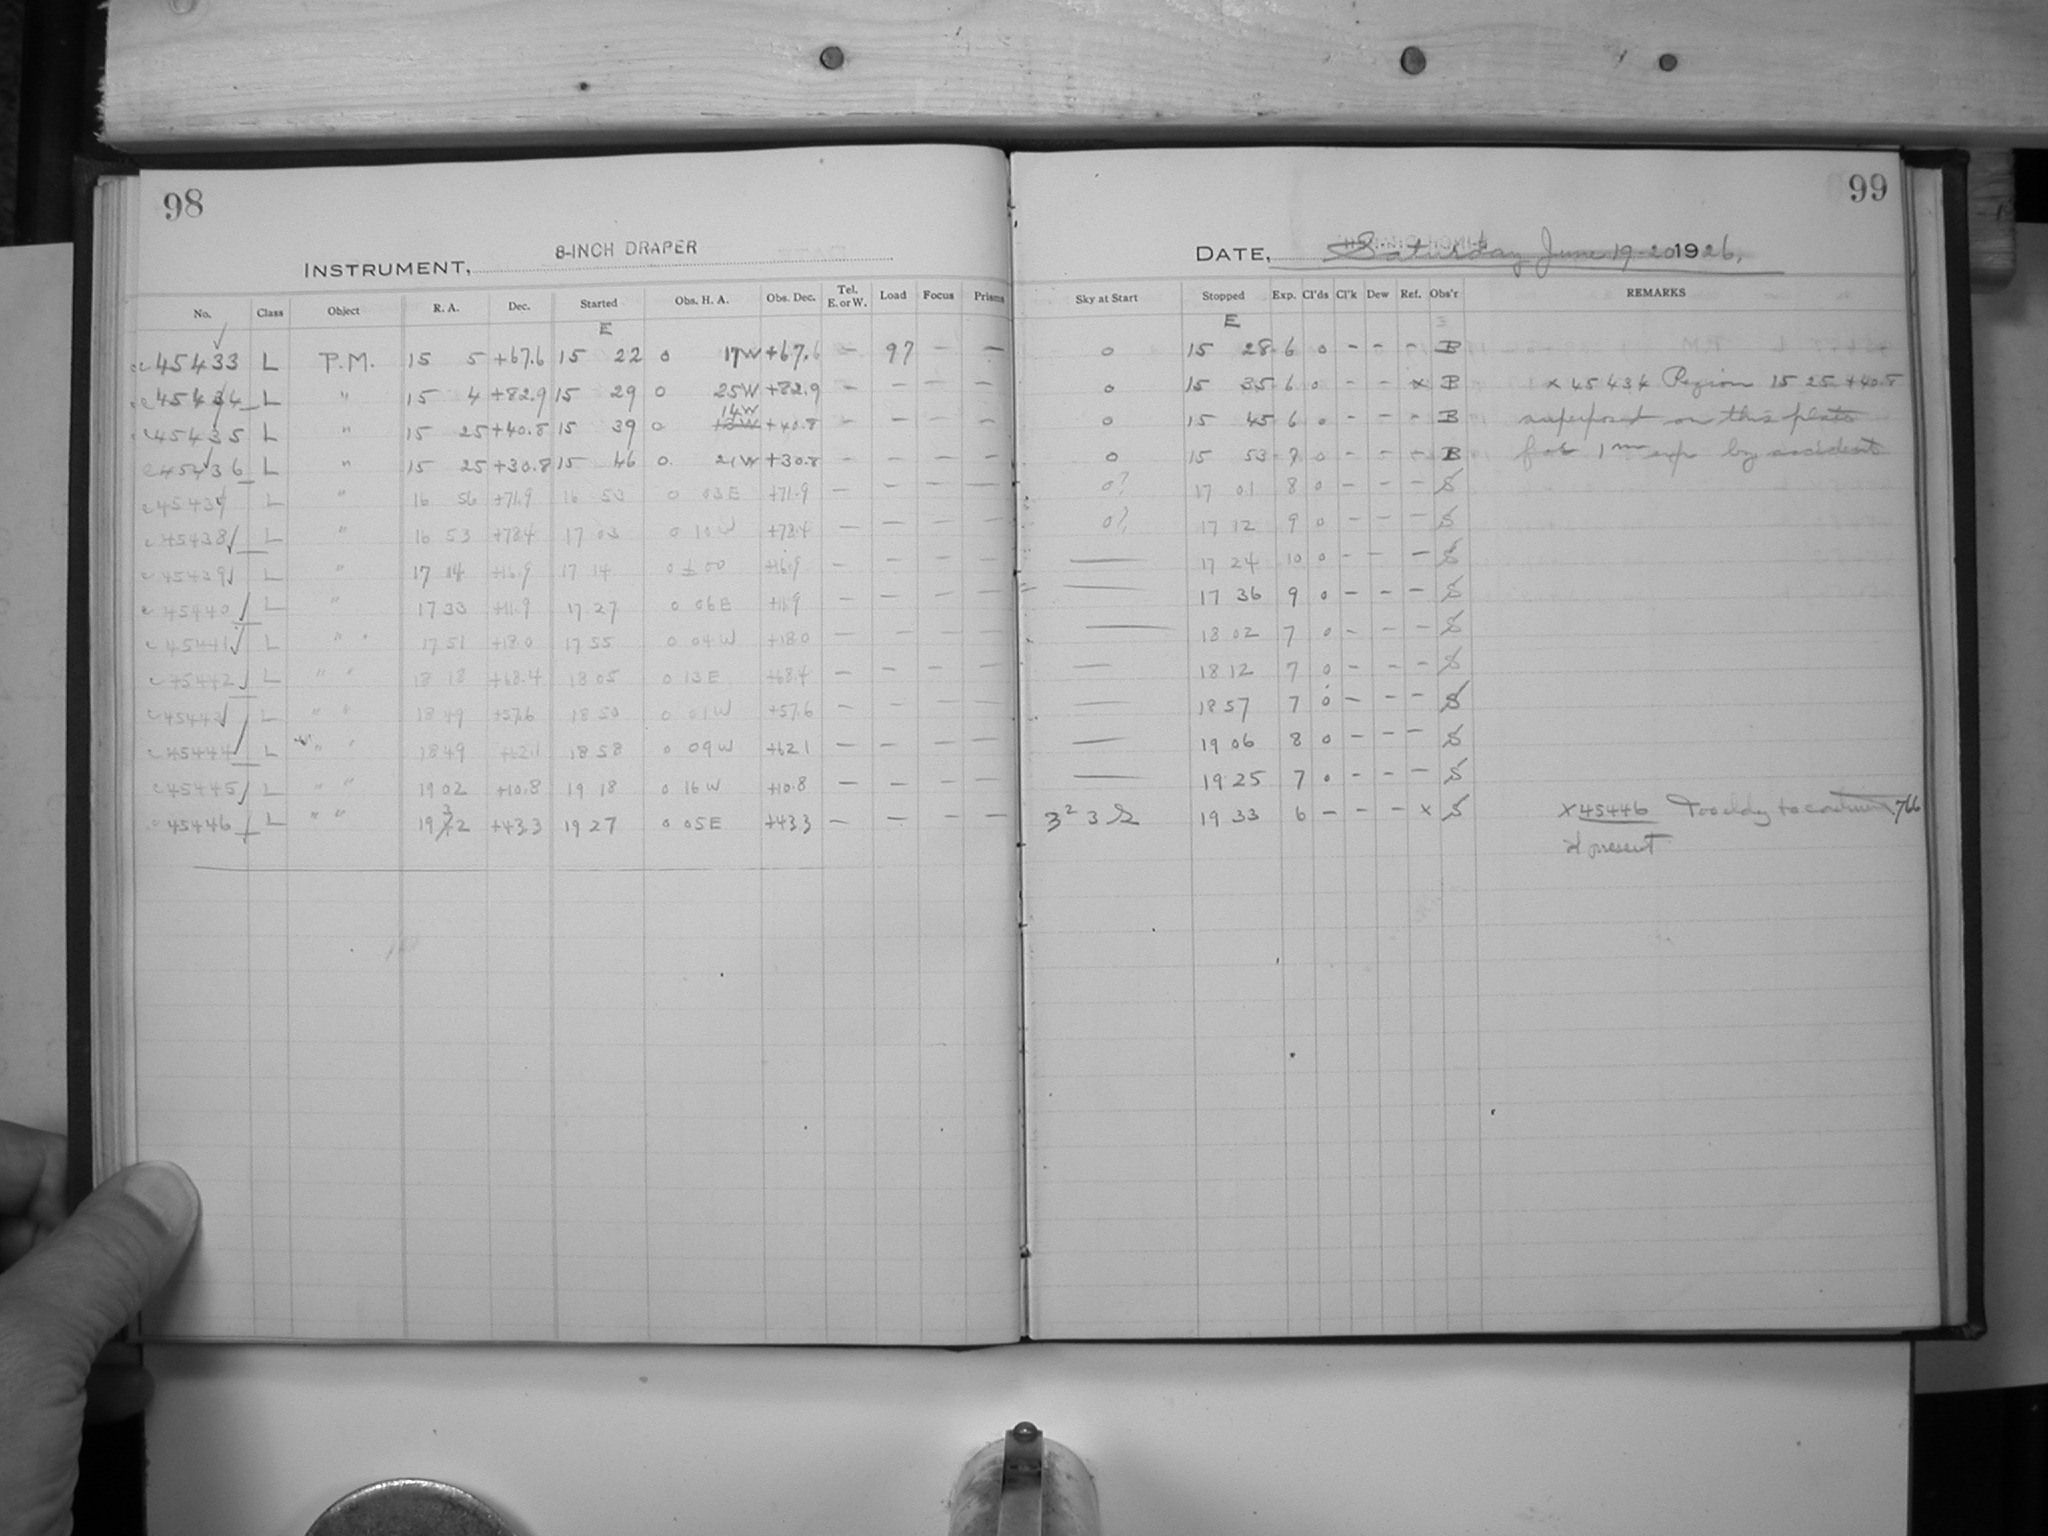 98
INSTRUMENT, 8-INCH DRAPER
No. Class Object R. A. Dec. Started Obs. H. A. Obs. Dec. Tel. E. or W. Load Focus Prisms
E
45433 L P.M. 15 5 +67.6 15 22 0 17W +67.6 — 97 — —
45434 L " 15 4 +82.9 15 29 0 25W +82.9 — — — —
14W
45435 L " 15 25 +40.8 15 39 0 +40.8 — — — —
45436 L " 15 25 +30.8 15 46 0 21W +30.8 — — — —
45437 L " 16 56 +71.9 16 53 0 03E +71.9 — — — —
45438 L " 16 53 +78.4 17 03 0 10W +78.4 — — — —
45439 L " 17 14 +16.9 17 14 0 ±00 +16.9 — — — —
45440 L " 17 33 +11.9 17 27 0 06E +11.9 — — — —
45441 L " " 17 51 +18.0 17 55 0 04W +18.0 — — — —
45442 L " " 18 18 +68.4 18 05 0 13E +68.4 — — — —
45443 L " " 18 49 +57.6 18 50 0 01W +57.6 — — — —
45444 L " " 18 49 +62.1 18 58 0 09W +62.1 — — — —
45445 L " " 19 02 +10.8 19 18 0 16W +10.8 — — — —
45446 L " " 19 32 +43.3 19 27 0 05E +43.3 — — — —
99
DATE, Saturday June 19-20 1926.
Sky at Start Stopped Exp. Cl'ds Cl'k Dew Ref. Obs'r REMARKS
E
0 15 28 6 0 - - - B
0 15 35 6 0 - - x B x 45434 Region 15 25 +40.8
0 15 45 6 0 - - - B superposed on this plate
0 15 53 7 0 - - - B for 1m exp by accident
0? 17 01 8 0 - - - S
0? 17 12 9 0 - - - S
— 17 24 10 0 - - - S
— 17 36 9 0 - - - S
— 18 02 7 0 - - - S
— 18 12 7 0 - - - S
— 18 57 7 0 - - - S
— 19 06 8 0 - - - S
— 19 25 7 0 - - - S
3² 3 19 33 6 - - - x S x 45446 Too cldy to continue
present